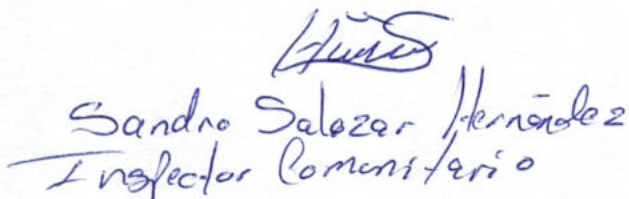 Sandro Salazar Hernández
Inspector Comunitario